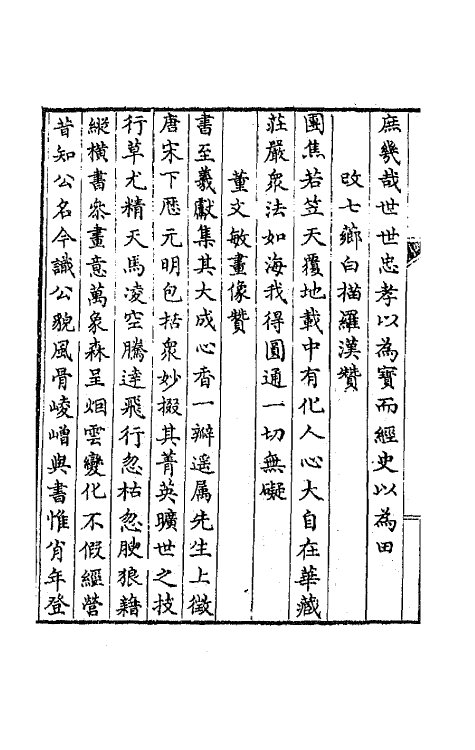 庶幾哉世世忠孝以為寳而經史以為田
改七薌白描羅漢贊
團焦若笠天覆地載中有化人心大自在華藏
莊嚴衆法如海我得圓通一切無礙
董文敏畫像贊
書至羲獻集其大成心香一瓣遥属先生上徵
唐宋下歴元明包括衆妙掇其菁英曠世之技
行草尤精天馬凌空騰逹飛行忽枯忽腴狼籍
縱横書叅畫意萬象森呈烟雲變化不假經營
昔知公名今識公貌風骨崚嶒與書惟肖年登